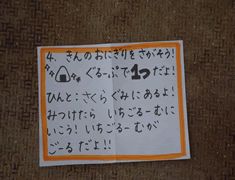 4. きんのおにぎりをさがそう!
ぐるーぷで1つだよ!
ひんと:さくらぐみにあるよ!
みつけたら いちごるーむに
いこう! いちごるーむが
ごーるだよ!!